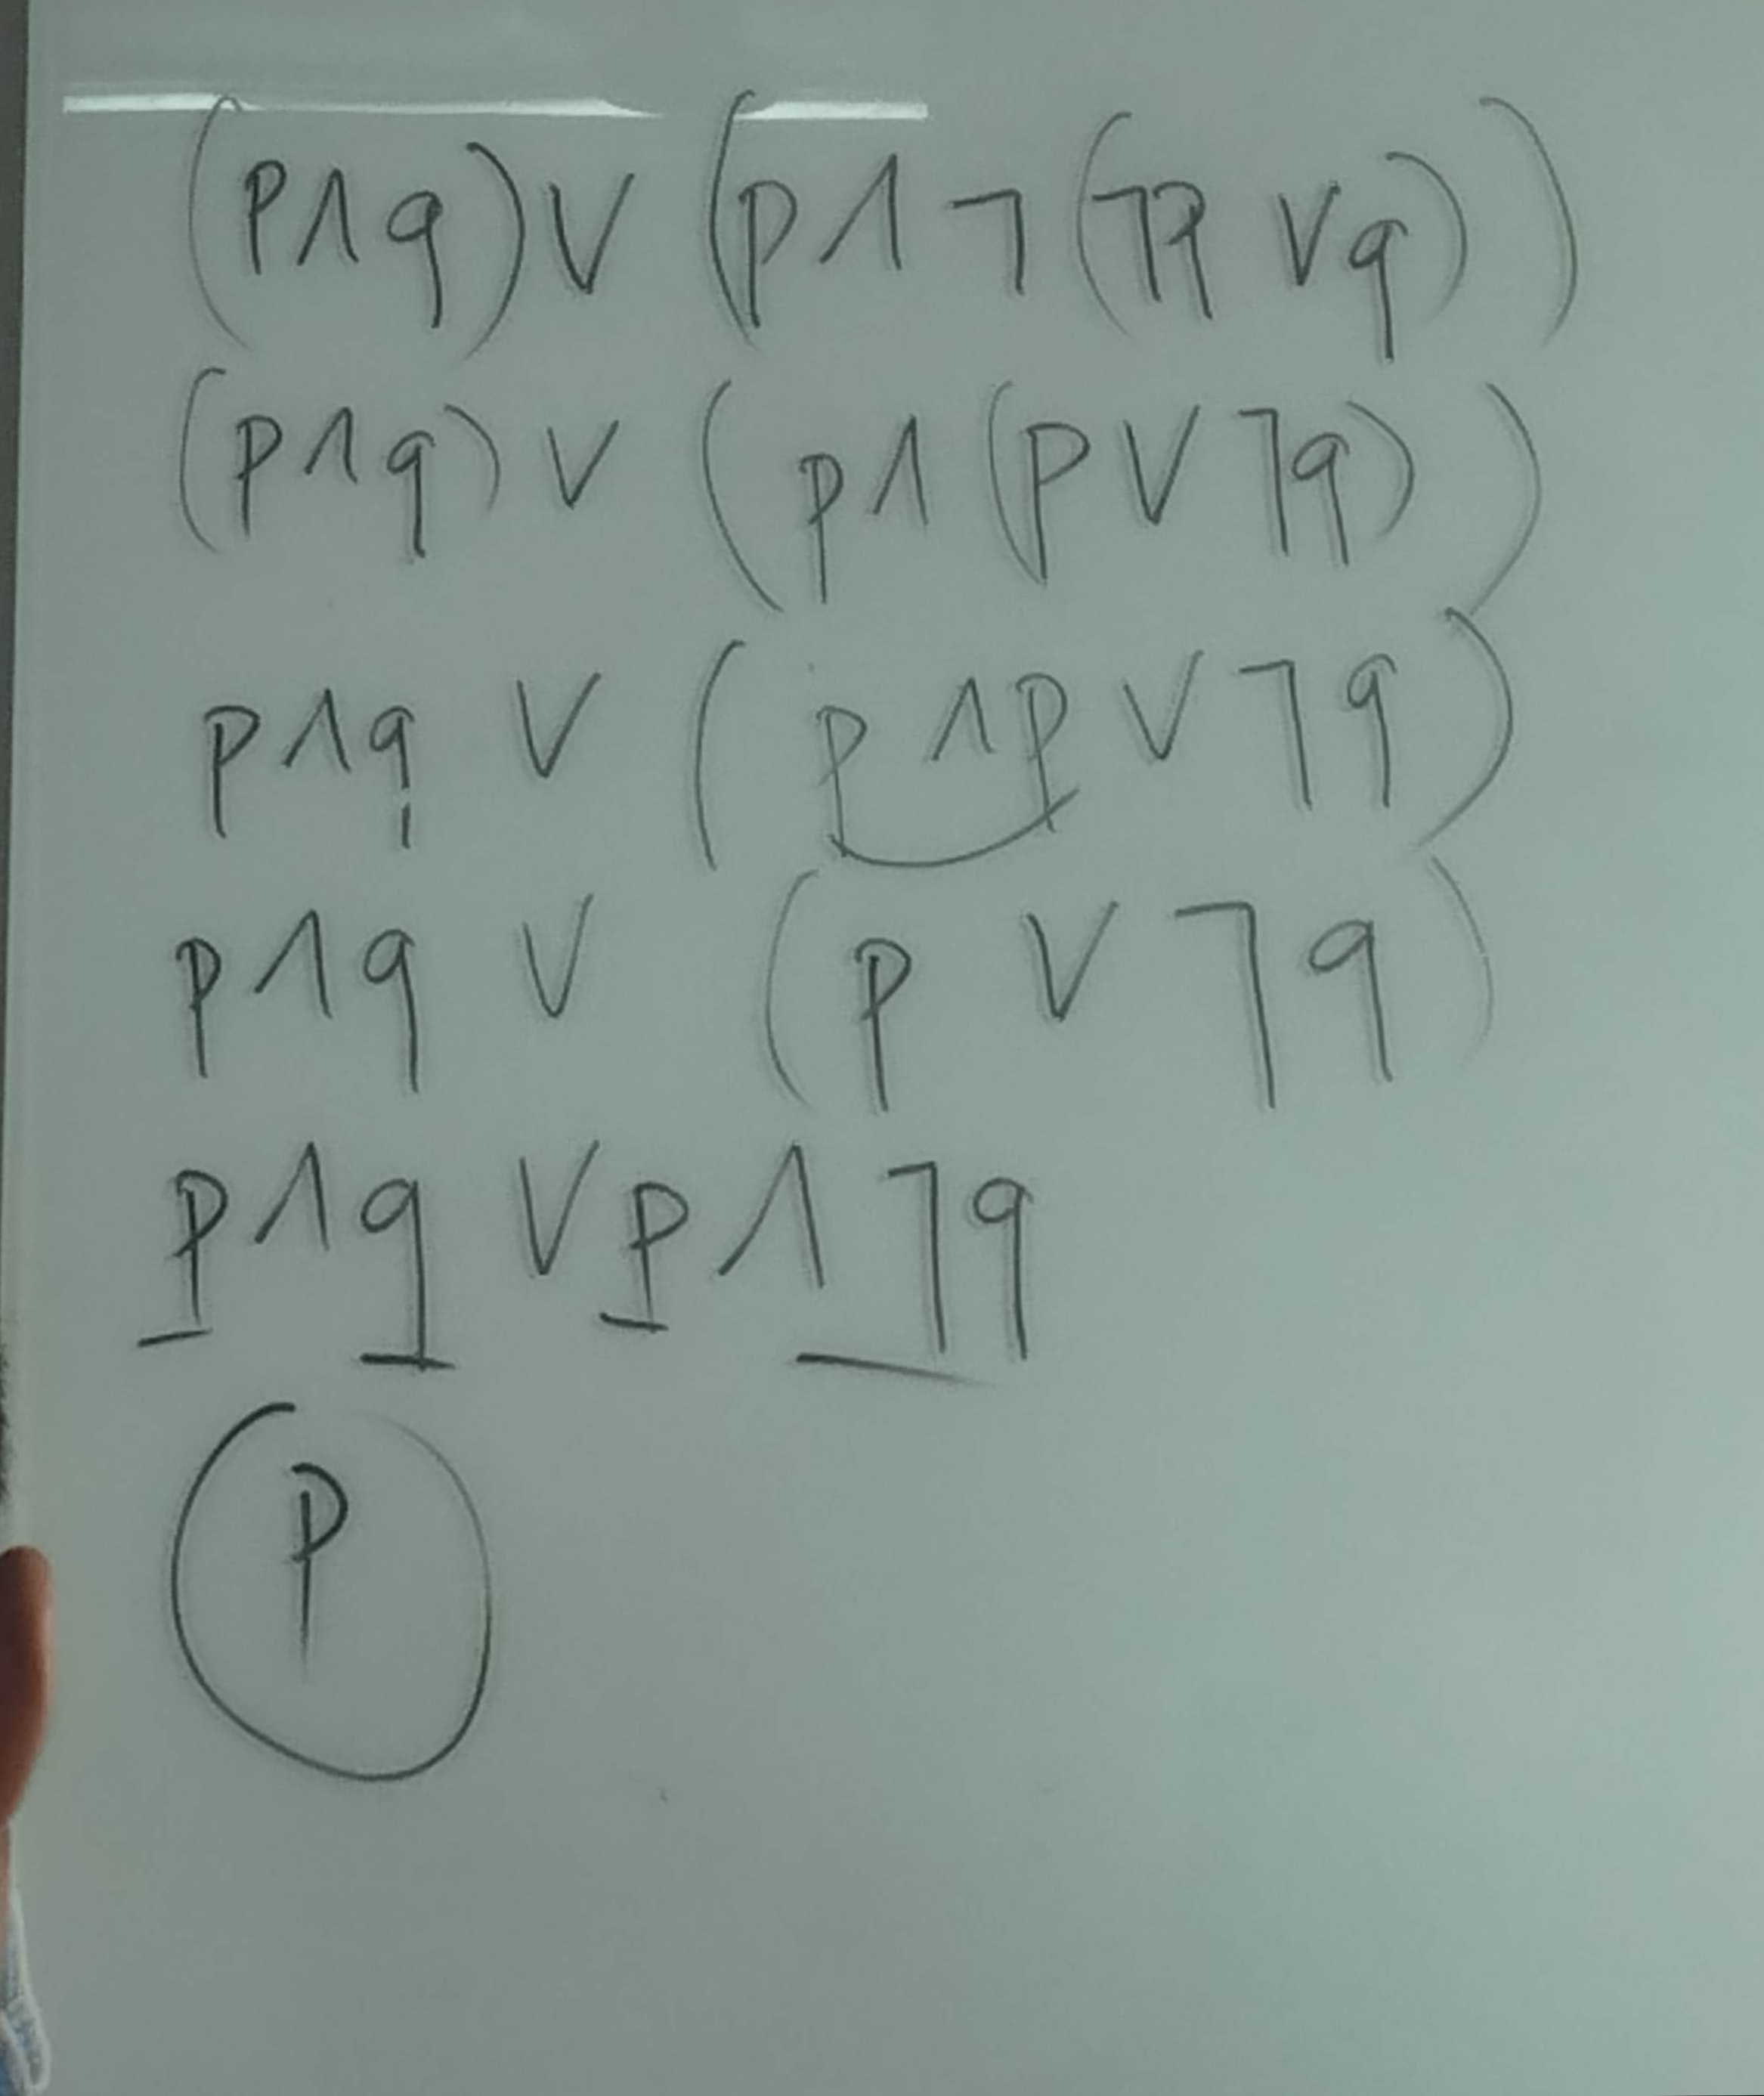 (p∧q)∨(p∧¬(¬p∨q))
(p∧q)∨(p∧(p∨¬q))
p∧q∨(p∧p∨¬q)
p∧q∨(p∨¬q)
p∧q∨p∧¬q
p